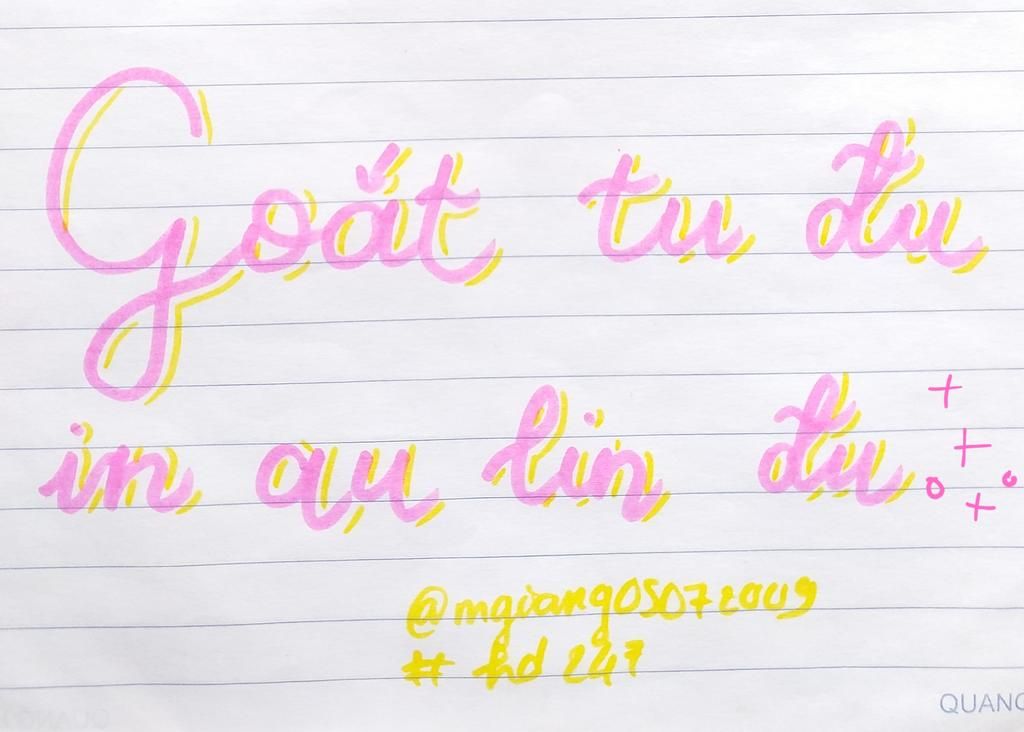 Goắt tu đu
in qu lin đu
@mgiang05072009
# hd 247
QUANG